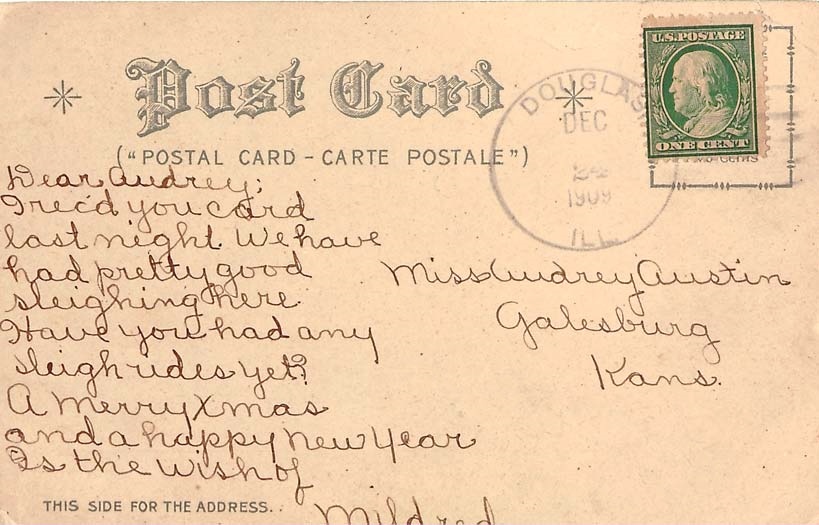 Post Card
("POSTAL CARD - CARTE POSTALE")
U.S. POSTAGE
ONE CENT
DOUGLAS
DEC
24
1909
ILL.
Dear Audrey;
I rec'd you card
last night. We have
had pretty good
sleighing here
Have you had any
sleigh rides yet?
A Merry Xmas
and a happy New Year
Is the wish of
Mildred
Miss Audrey Austin
Galesburg
Kans.
THIS SIDE FOR THE ADDRESS.